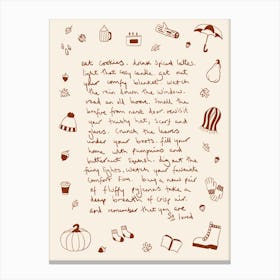 eat cookies. drink spiced lattes.
light that cosy candle. get out
your comfy blanket. watch
the rain down the window.
read an old book. smell the
bonfire from next door. revisit
your trusty hat, scarf and
gloves. crunch the leaves
under your boots. fill your
home with pumpkins and
butternut squash. dig out the
fairy lights, watch your favourite
comfort film. buy a new pair
of fluffy pyjamas. take a
deep breath of crisp air.
and remember that you are
so loved